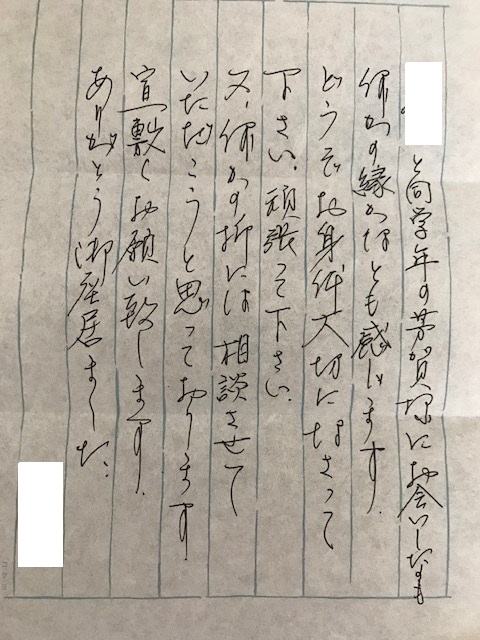 と同学年の芳賀様にお会いしたのも
何かの縁かなとも感じます。
どうぞお身体大切になさって
下さい。頑張って下さい。
又、何かの折には相談させて
いただこうと思っております。
宜敷くお願い致します。
ありがとう御座居ました。